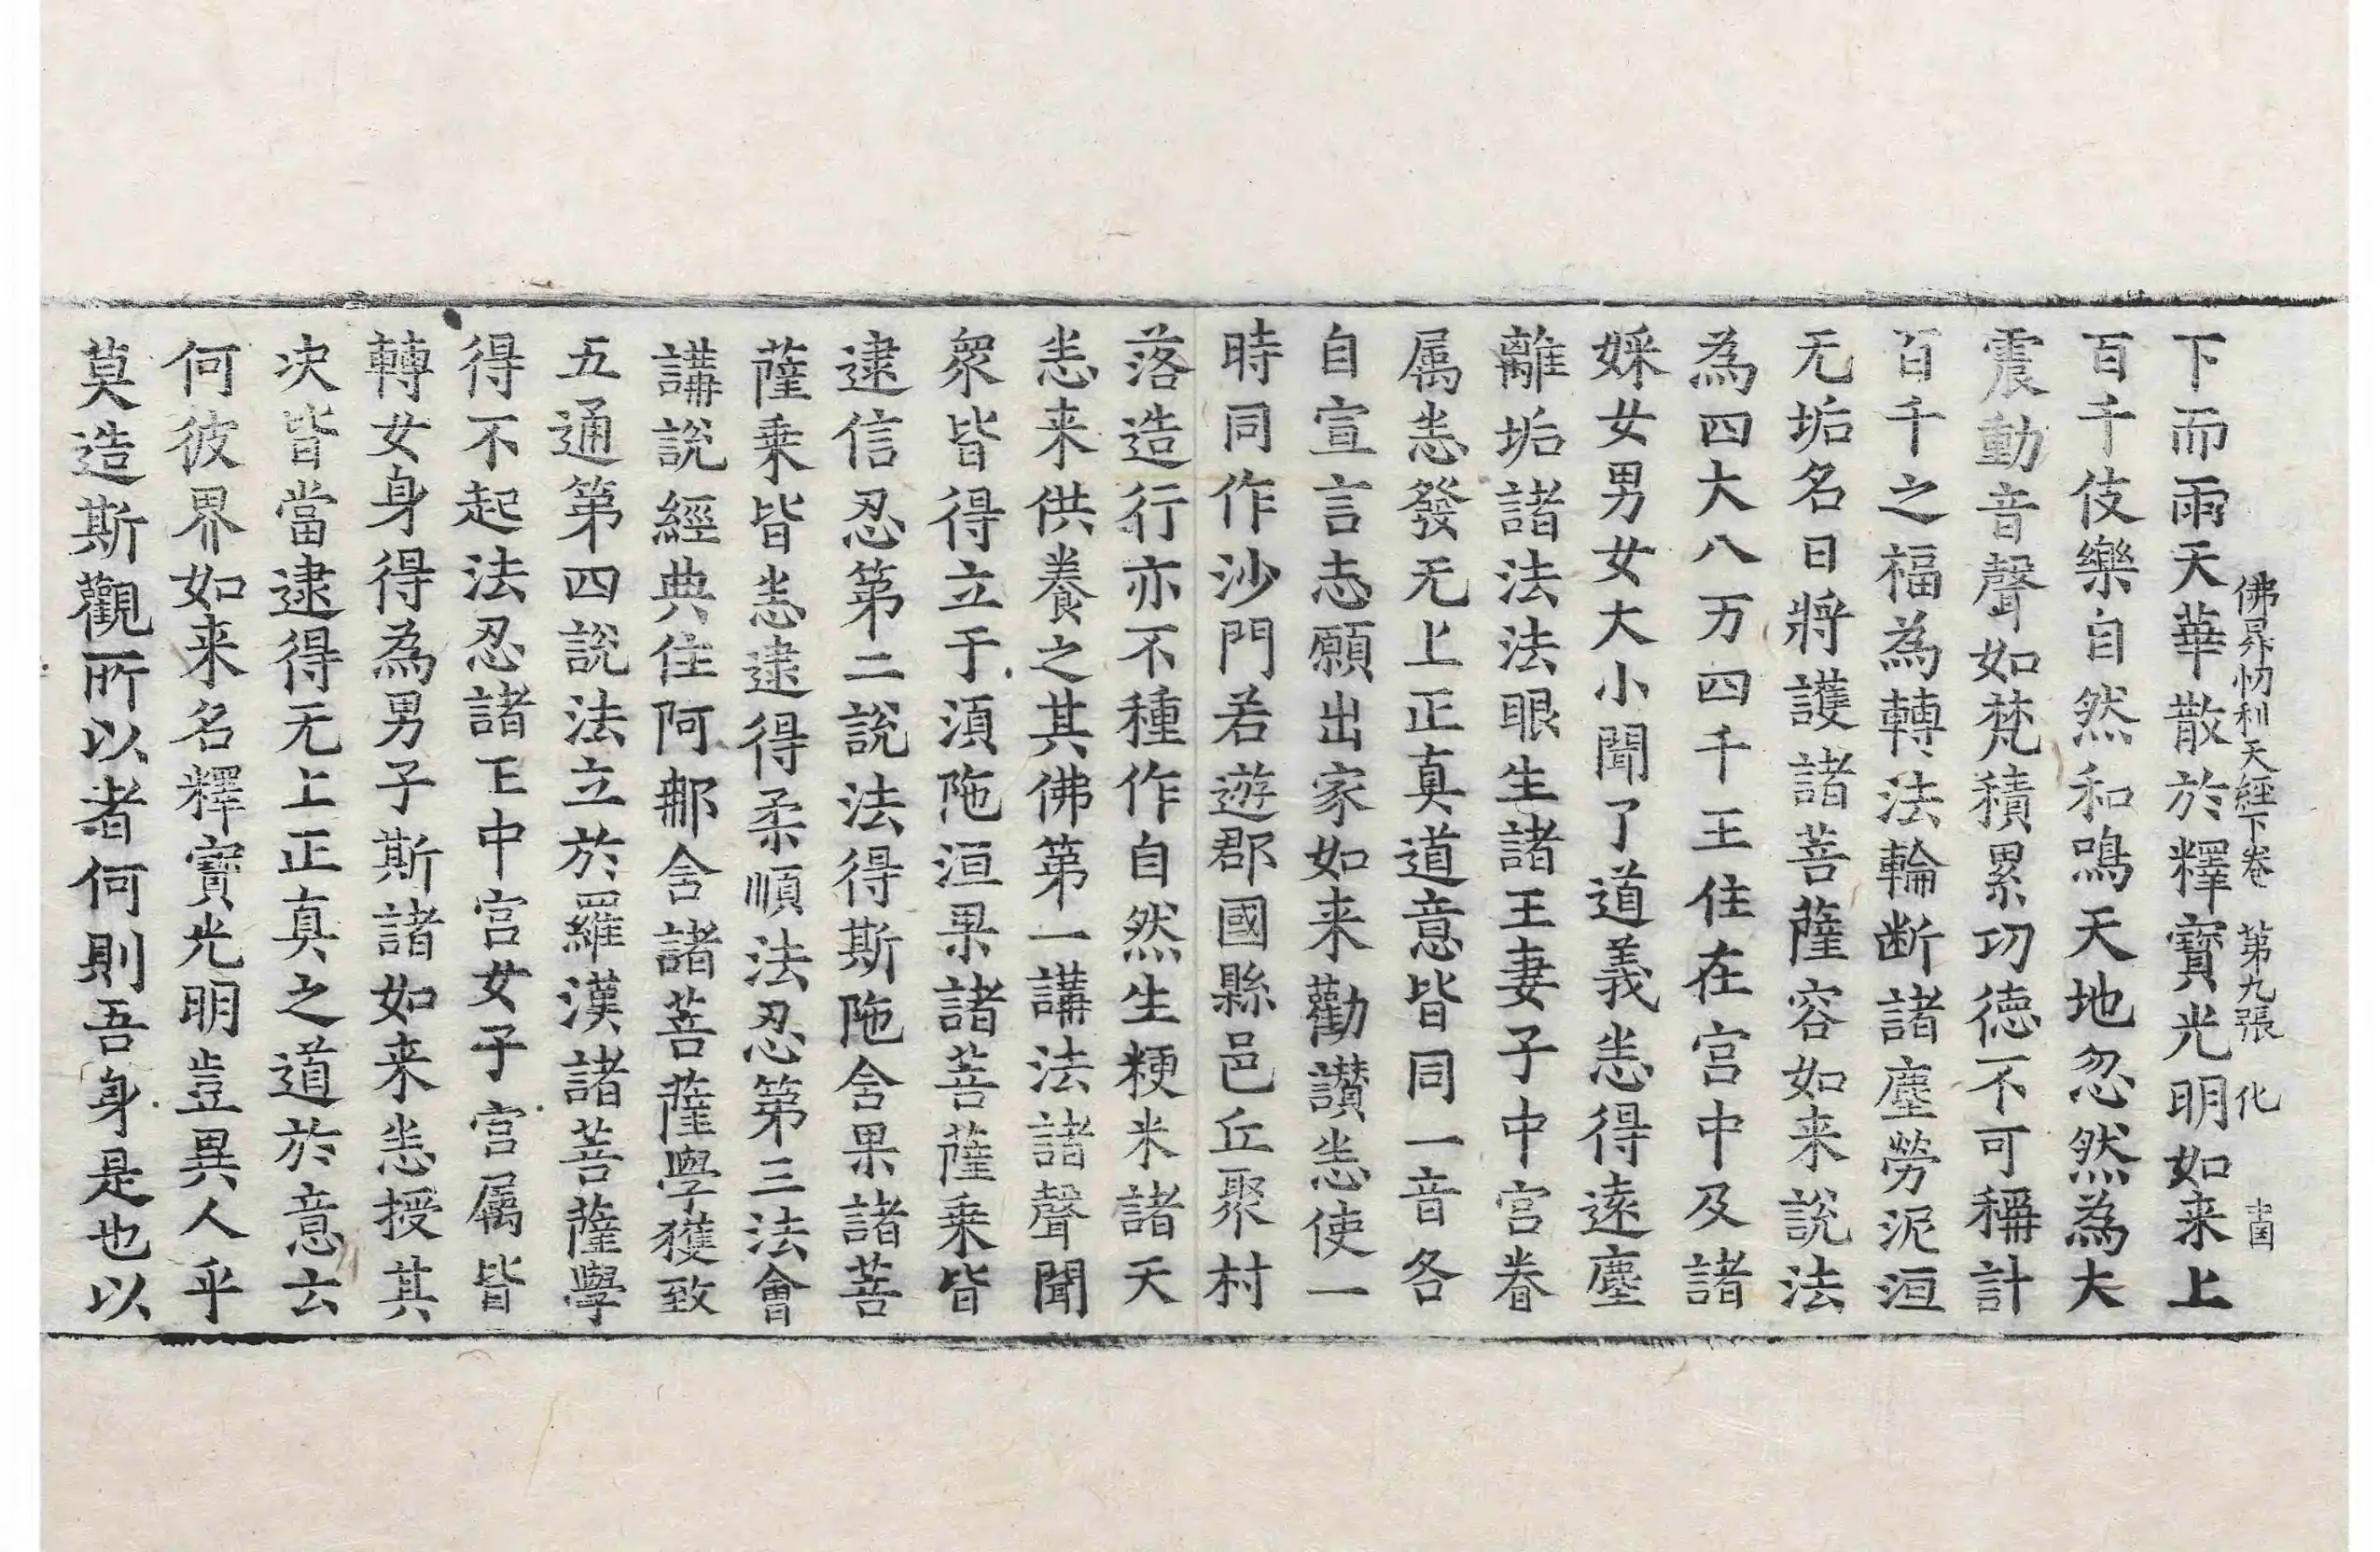 佛昇忉利天經下卷 第九張 化
下而雨天華散於釋寶光明如来上
百千伎樂自然和鳴天地忽然為大
震動音聲如梵積累功德不可稱計
百千之福為轉法輪断諸塵勞泥洹
无垢名曰將護諸菩薩容如来說法
為四大八万四千王住在宮中及諸
婇女男女大小聞了道義恙得遠塵
離垢諸法法眼生諸王妻子中宮眷
属恙發无上正真道意皆同一音各
自宣言志願出家如来勸讃恙使一
時同作沙門若遊郡國縣邑丘聚村
落造行亦不種作自然生粳米諸天
恙来供養之其佛第一講法諸聲聞
衆皆得立于湏陁洹果諸菩薩乗皆
逮信忍第二說法得斯陁含果諸菩
薩乗皆恙逮得柔順法忍第三法會
講說經典住阿那含諸菩薩學獲致
五通第四說法立於羅漢諸菩薩學
得不起法忍諸王中宮女子宮属皆
轉女身得為男子斯諸如来恙授其
决皆當逮得无上正真之道於意云
何彼界如来名釋寶光明豈異人乎
莫造斯觀所以者何則吾身是也以